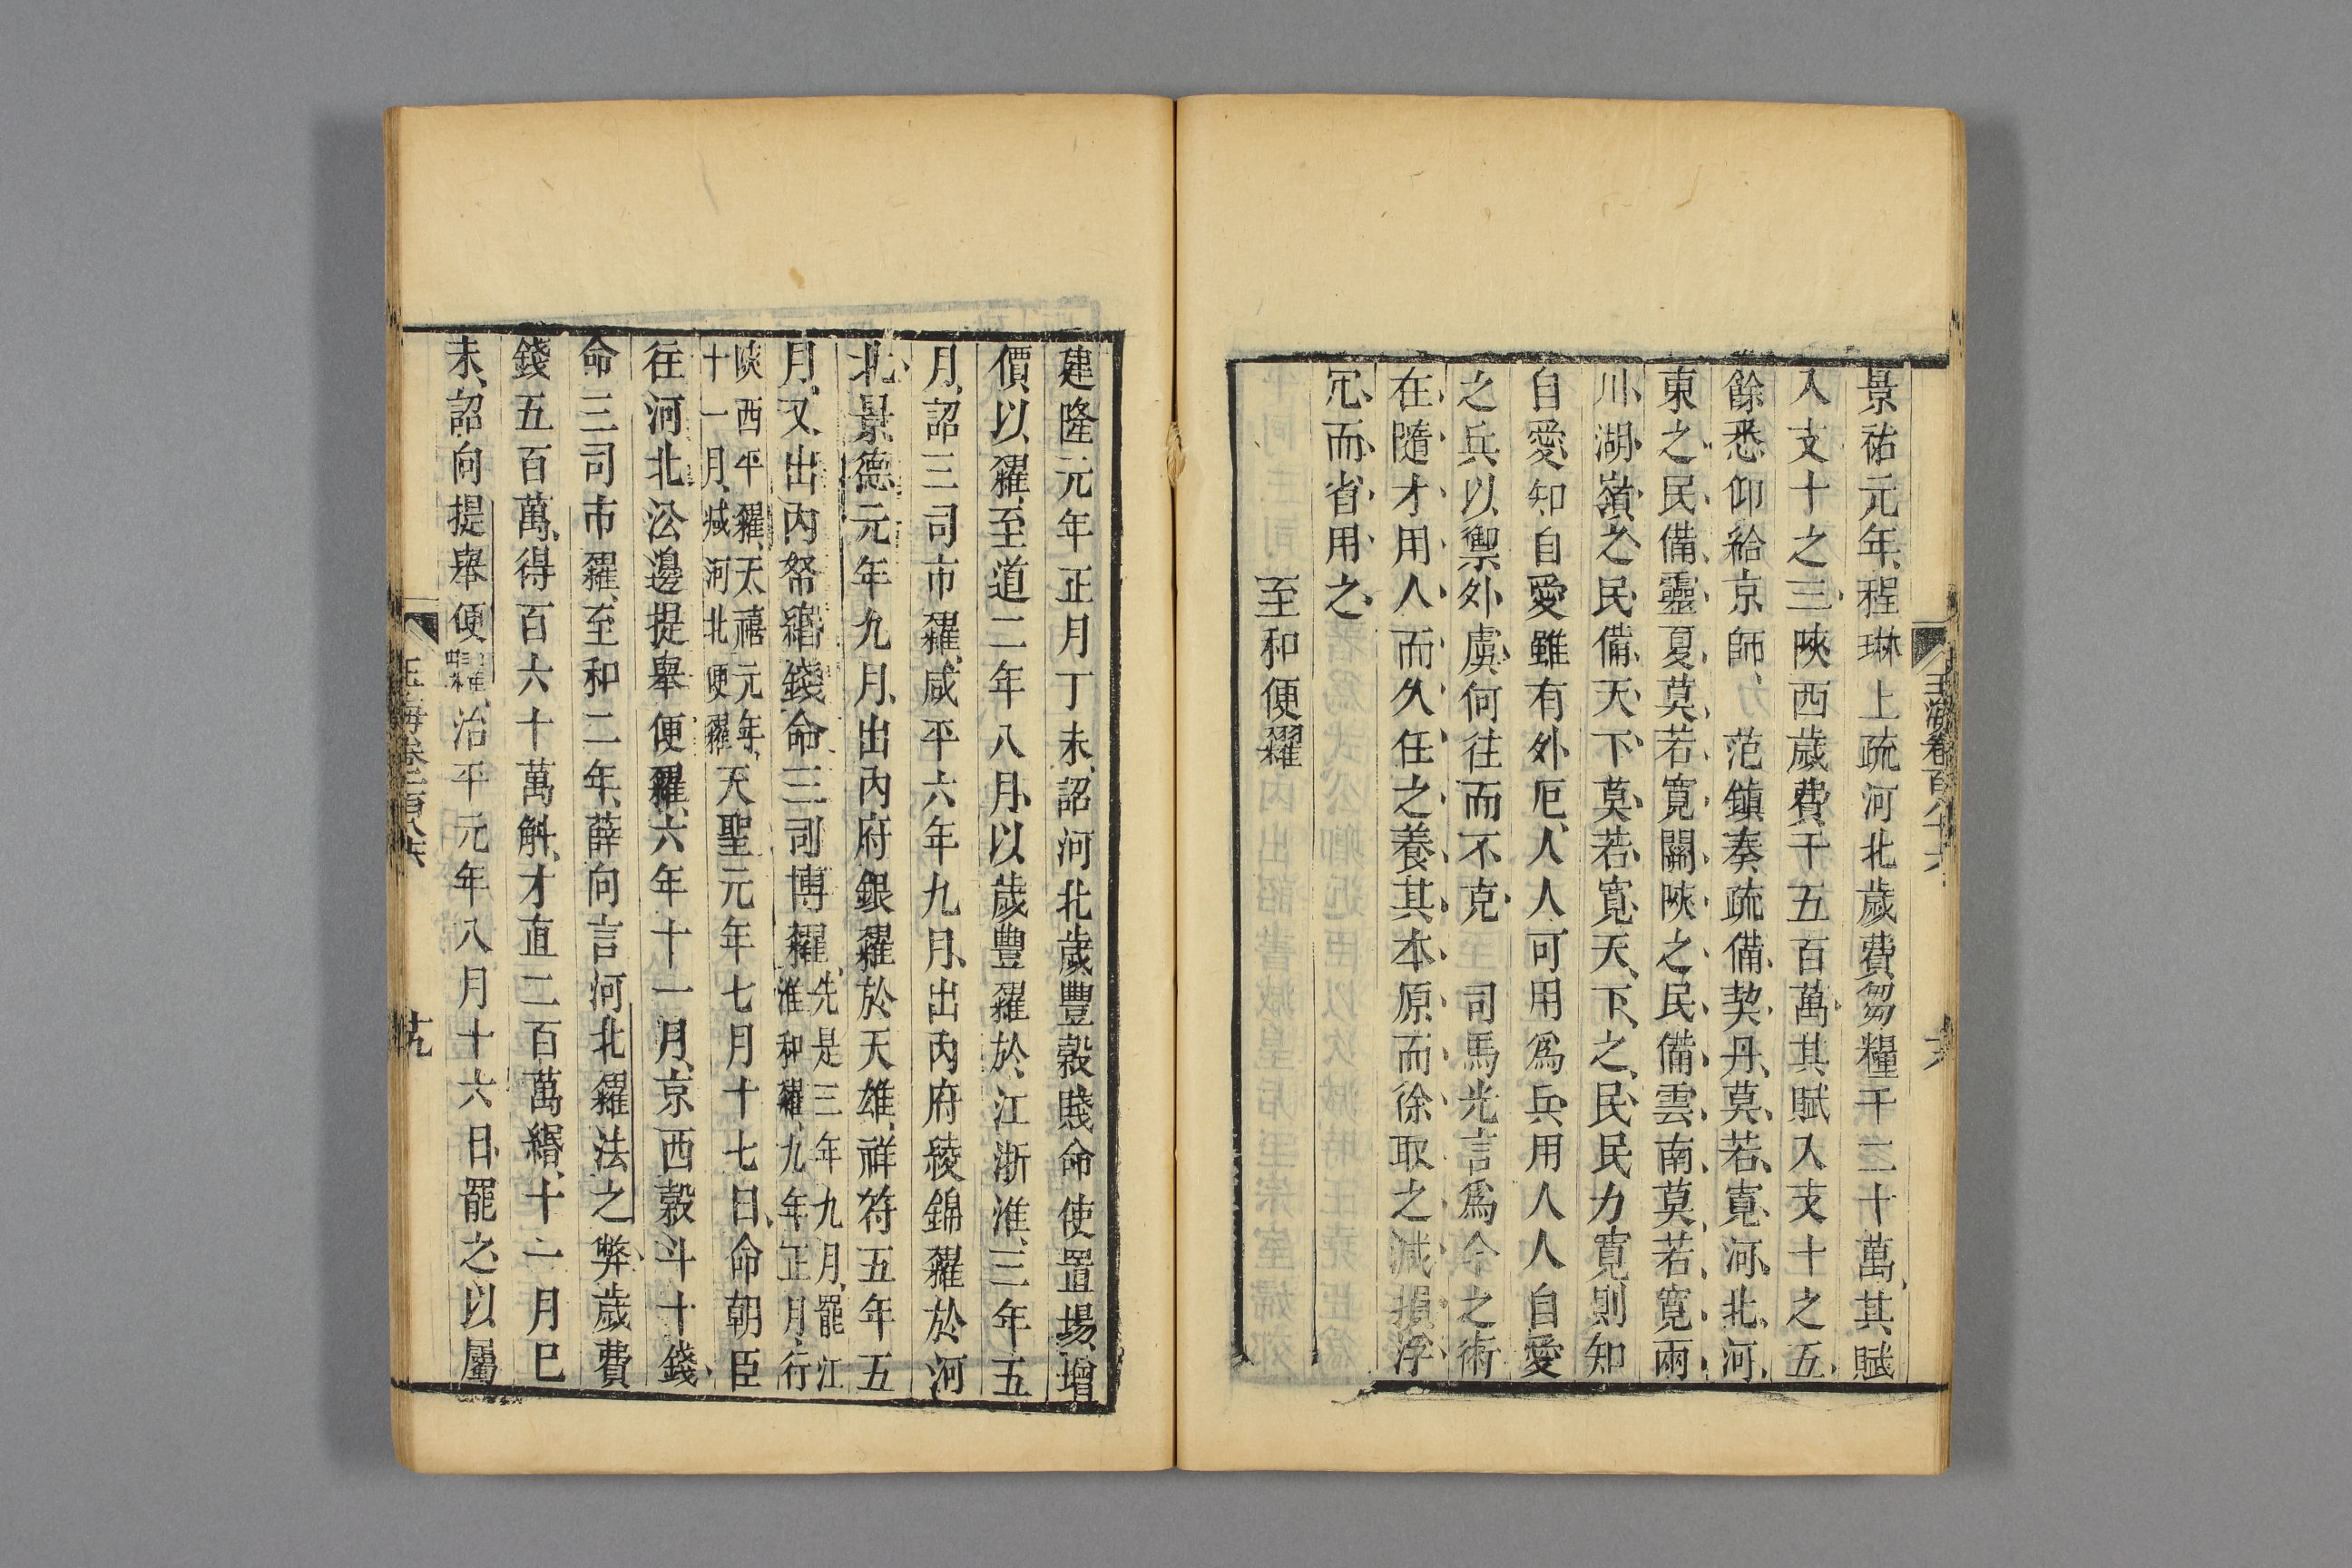 景祐元年程琳上疏河北歲費芻糧千二十萬其賦
入支十之三陜西歲費千五百萬其賦入支十之五
餘悉仰給京師 范鎮奏疏備契丹莫若寛河北河
東之民備靈夏莫若寛關陜之民備雲南莫若寛兩
川湖嶺之民備天下莫若寛天下之民民力寛則知
自愛知自愛雖有外厄人人可用爲兵用人人自愛
之兵以禦外虞何往而不克 司馬光言爲今之術
在隨才用人而久任之養其本原而徐取之減損浮
冗而省用之
至和便糴
建隆元年正月丁未詔河北歲豐穀賤命使置場增
價以糴至道二年八月以歲豐糴於江浙淮三年五
月詔三司市糴咸平六年九月出內府綾錦糴於河
北景德元年九月出內府銀糴於天雄祥符五年五
月又出內帑緡錢命三司博糴先是三年九月罷江
淮和糴九年正月行
陜西平糴天禧元年
十一月減河北便糴天聖元年七月十七日命朝臣
往河北㳂邊提舉便糴六年十一月京西穀斗十錢
命三司市糴至和二年薛向言河北糴法之弊歲費
錢五百萬得百六十萬斛才直二百萬緡十二月巳
未詔向提舉便糴治平元年八月十六日罷之以屬